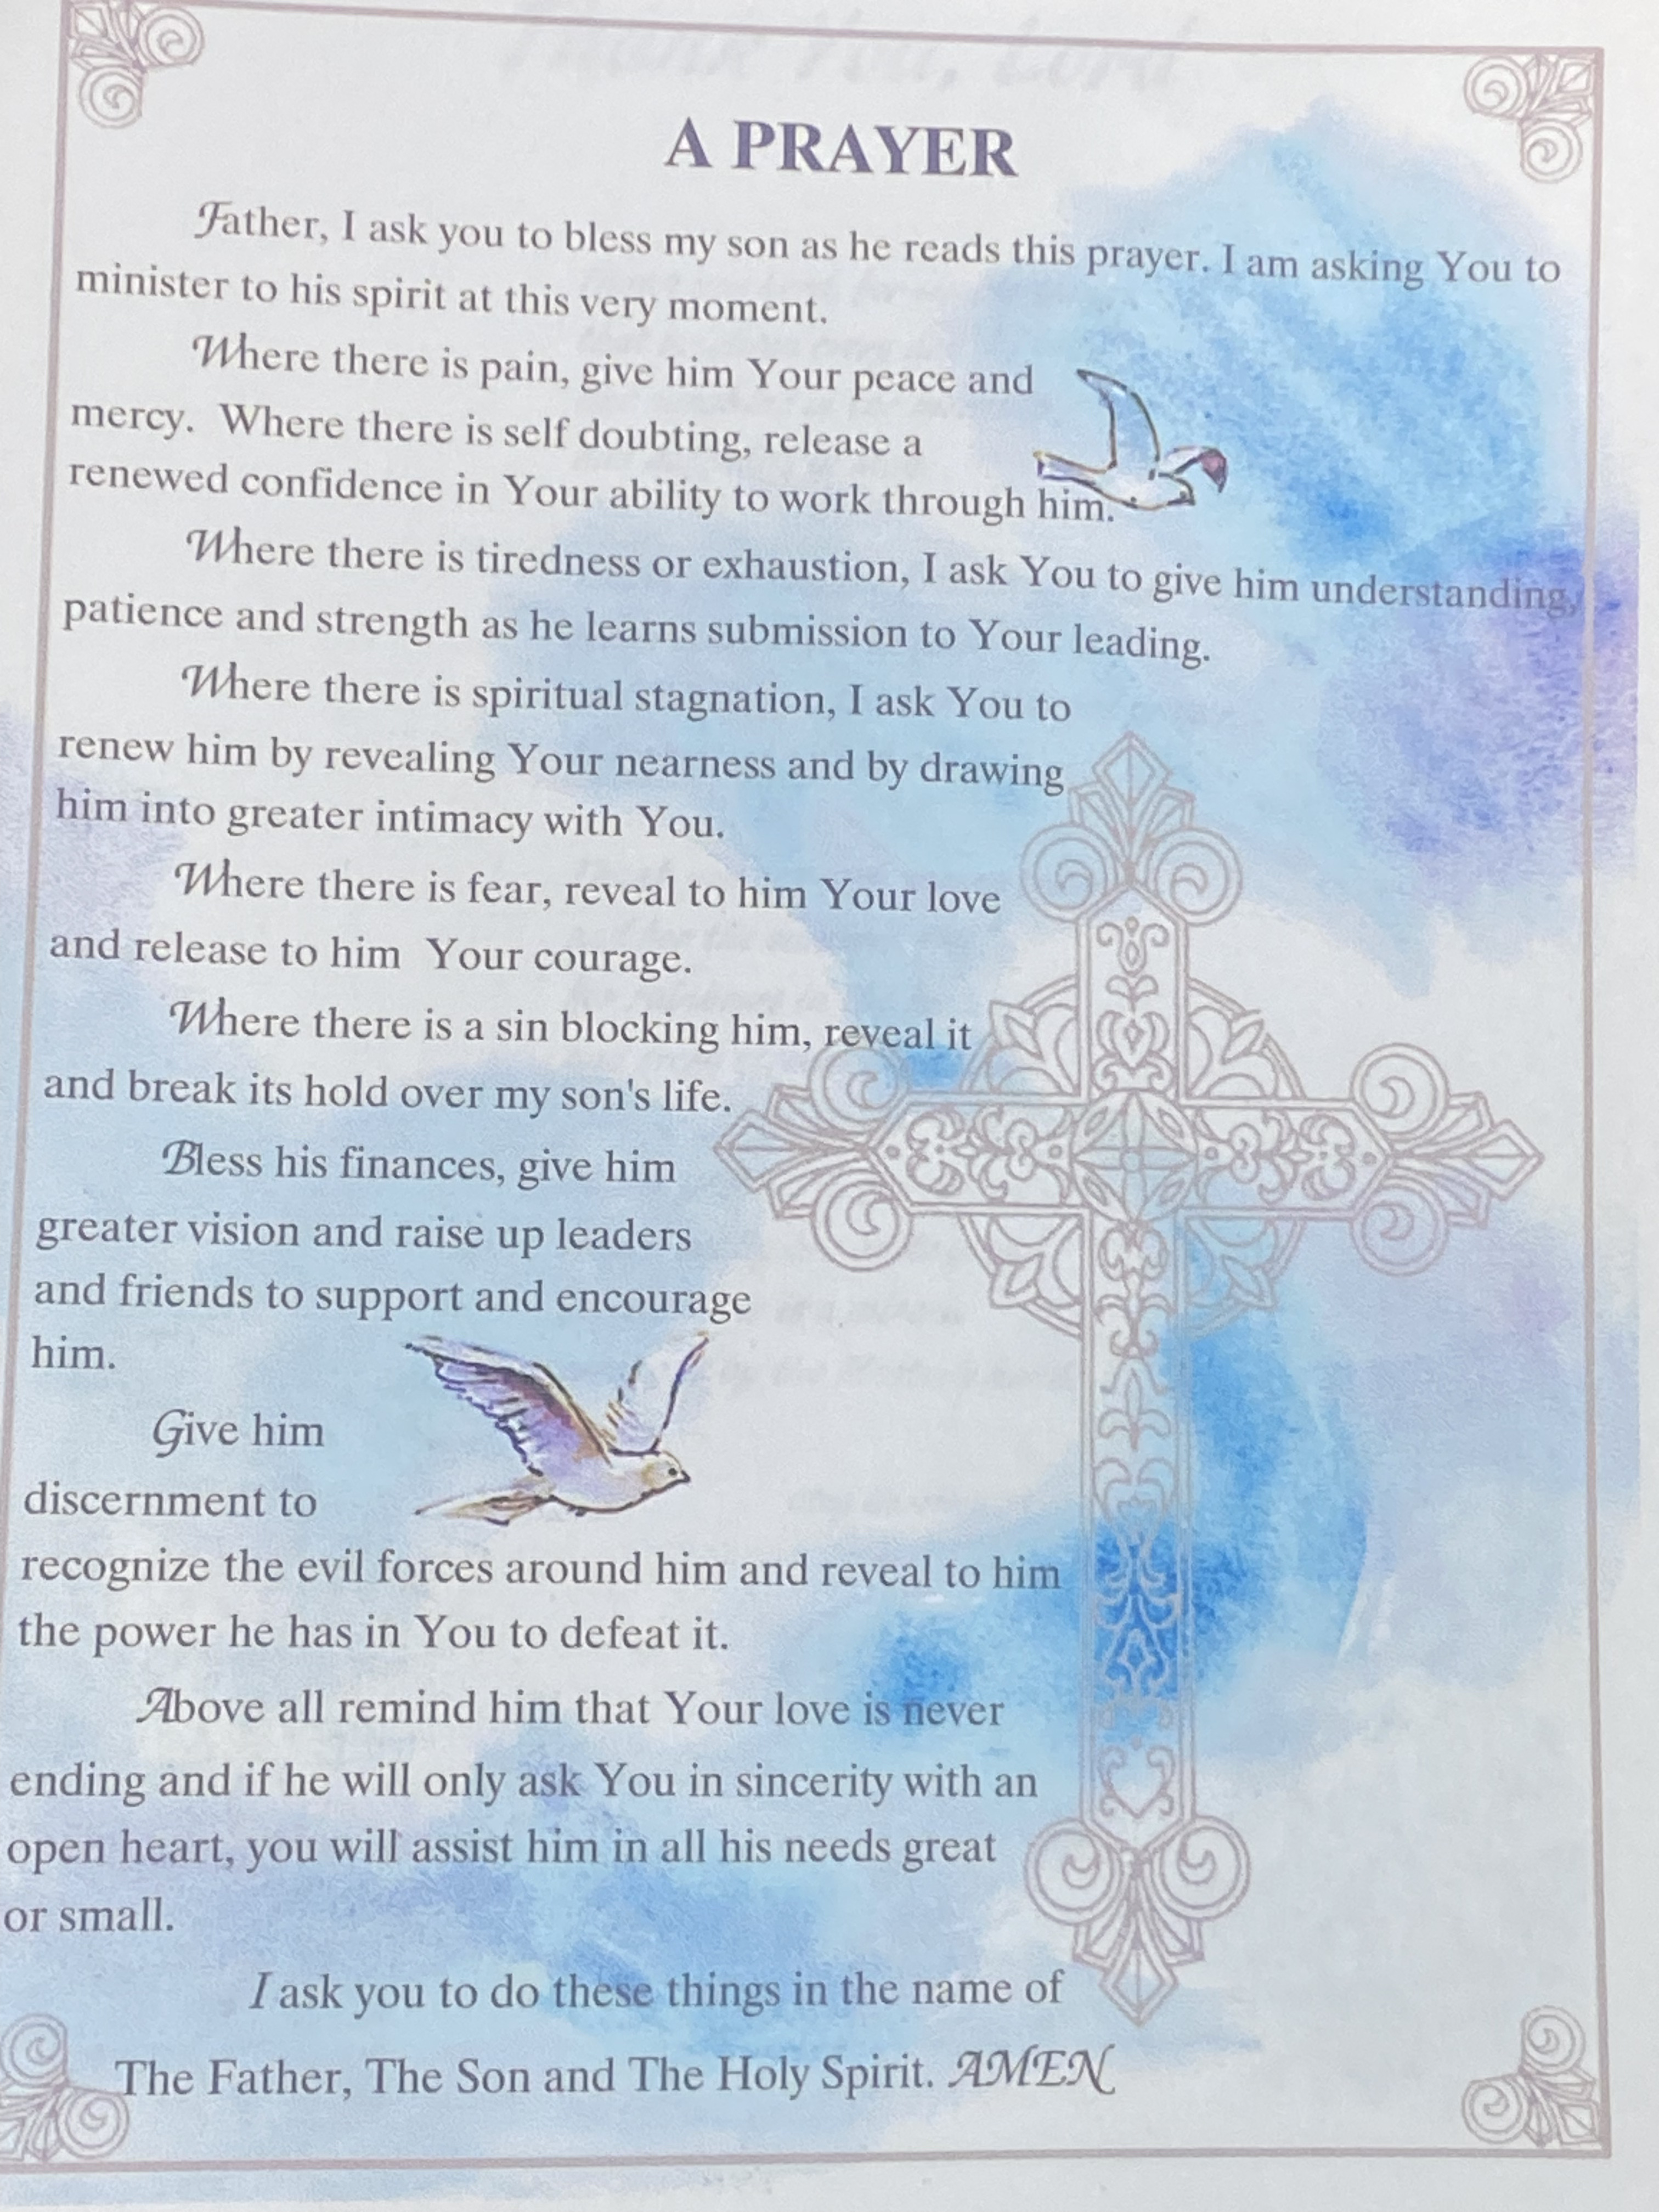 Thank You, Lord
A PRAYER
Father, I ask you to bless my son as he reads this prayer. I am asking You to
minister to his spirit at this very moment.
Where there is pain, give him Your peace and
mercy. Where there is self doubting, release a
renewed confidence in Your ability to work through him.
Where there is tiredness or exhaustion, I ask You to give him understanding,
patience and strength as he learns submission to Your leading.
Where there is spiritual stagnation, I ask You to
renew him by revealing Your nearness and by drawing
him into greater intimacy with You.
Where there is fear, reveal to him Your love
and release to him Your courage.
Where there is a sin blocking him, reveal it
and break its hold over my son's life.
Bless his finances, give him
greater vision and raise up leaders
and friends to support and encourage
him.
Give him
discernment to
recognize the evil forces around him and reveal to him
the power he has in You to defeat it.
Above all remind him that Your love is never
ending and if he will only ask You in sincerity with an
open heart, you will assist him in all his needs great
or small.
I ask you to do these things in the name of
The Father, The Son and The Holy Spirit. AMEN